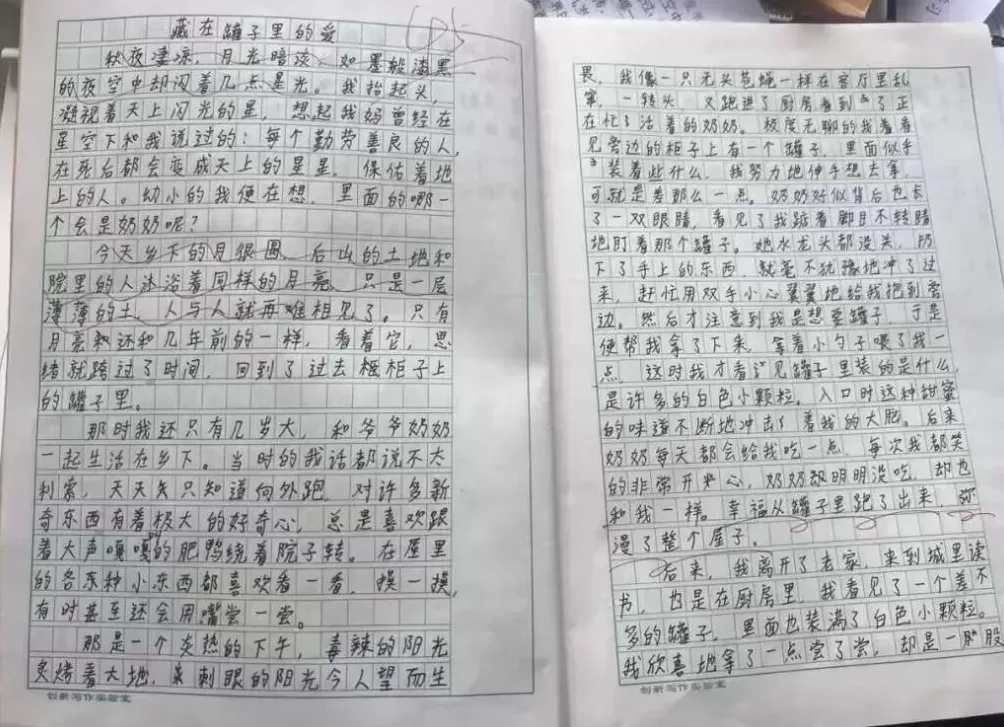 藏在罐子里的爱
秋夜凄凉，月光暗淡，如墨般漆黑
的夜空中却闪着几点星光。我抬起头，
凝视着天上闪光的星，想起我妈曾经在
星空下和我说过的：每个勤劳善良的人，
在死后都会变成天上的星星，保佑着地
上的人。幼小的我便在想，里面的哪一
个会是奶奶呢？
今天乡下的月很圆，后山的土地和
院里的人沐浴着同样的月亮，只是一层
薄薄的土，人与人就再难相见了。只有
月亮还和几年前的一样，看着它，思
绪就跨过了时间，回到了过去柜子上
的罐子里。
那时我还只有几岁大，和爷爷奶奶
一起生活在乡下。当时的我话都说不太
利索，天天只知道向外跑，对许多新
奇东西有着极大的好奇心，总是喜欢跟
着大声嘎嘎的肥鸭绕着院子转。在屋里
的各种小东西都喜欢看一看，摸一摸，
有时甚至还会用嘴尝一尝。
那是一个炎热的下午，毒辣的阳光
炙烤着大地，刺眼的阳光令人望而生
创新写作实验室
畏，我像一只无头苍蝇一样在客厅里乱
窜，一转头，又跑进了厨房看到了正
在忙活着的奶奶。极度无聊的我看着
见旁边的柜子上有一个罐子，里面似乎
装着些什么，我努力地伸手想去拿，
可就是差那么一点。奶奶好似背后也长
了一双眼睛，看见了我踮着脚目不转睛
地盯着那个罐子。她水龙头都没关，扔
下了手上的东西，就毫不犹豫地冲了过
来，赶忙用双手小心翼翼地给我抱到旁
边。然后才注意到我是想要罐子，于是
便帮我拿了下来，拿着小勺子喂了我一
点，这时我才看见罐子里装的是什么，
是许多的白色小颗粒，入口时这种甜蜜
的味道不断地冲击着我的大脑。后来
奶奶每天都会给我吃一点，每次我都笑
的非常开心，奶奶明明没吃，却也
和我一样。幸福从罐子里跑了出来，弥
漫了整个屋子。
后来，我离开了老家，来到城里读
书，也是在厨房里，我看见了一个差不
多的罐子，里面也装满了白色小颗粒。
我欣喜地拿了一点尝了尝，却是一股
创新写作实验室